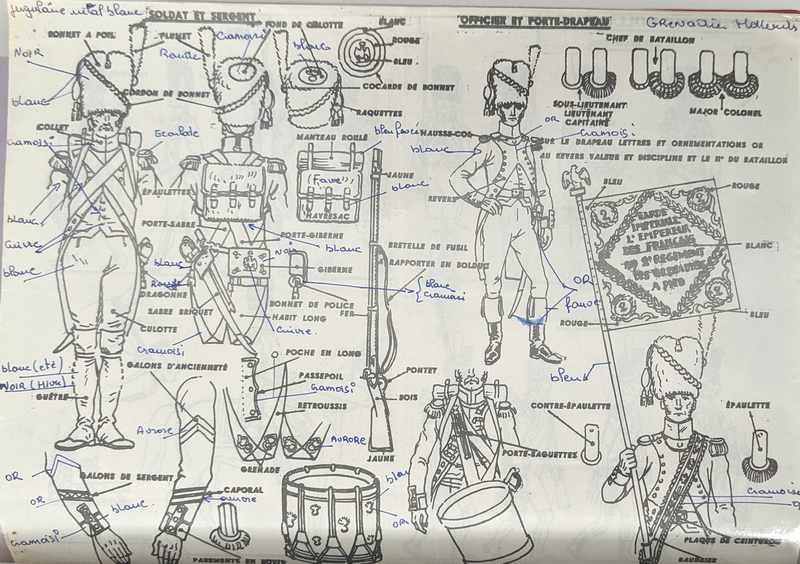 jugulaire métal blanc
SOLDAT ET SERGENT
OFFICIER ET PORTE-DRAPEAU
Grenadier Hollandais
BONNET A POIL
PLUMET
Rouge
Cramoisi
FOND DE CULOTTE
blanc
BLANC
ROUGE
BLEU
CHEF DE BATAILLON
NOIR
blanc
CORDON DE BONNET
COCARDE DE BONNET
RAQUETTES
SOUS-LIEUTENANT
LIEUTENANT
CAPITAINE
MAJOR
COLONEL
COLLET
cramoisi
Ecarlate
MANTEAU ROULÉ
bleu foncé
HAUSSE-COL
blanc
OR
cramoisi
SUR LE DRAPEAU LETTRES ET ORNEMENTATIONS OR
AU REVERS VALEUR ET DISCIPLINE ET LE N° DU BATAILLON
JAUNE
(Fauve)
blanc
ÉPAULETTES
HAVRESAC
REVERS
BLEU
ROUGE
blanc
Cuivre
blanc
PORTE-SABRE
PORTE-GIBERNE
blanc
BRETELLE DE FUSIL
RAPPORTER EN BOLDUC
GARDE
IMPERIALE
L'EMPEREUR
DES FRANÇAIS
AU 2e REGIMENT
DES GRENADIERS
A PIED
2
2
2
2
BLANC
blanc
Rouge
DRAGONNE
Noir
GIBERNE
blanc
cramoisi
OR
fauve
SABRE BRIQUET
BONNET DE POLICE
HABIT LONG
FER
CULOTTE
cramoisi
Cuivre
ROUGE
BLEU
blanc (été)
NOIR (HIVER)
GUÊTRE
GALONS D'ANCIENNETÉ
POCHE EN LONG
PASSEPOIL
cramoisi
RETROUSSIS
PONTET
BOIS
bleu
CONTRE-ÉPAULETTE
ÉPAULETTE
Aurore
AURORE
GRENADE
JAUNE
PORTE-BAGUETTES
OR
GALONS DE SERGENT
OR
blanc
CAPORAL
aurore
OR
cramoisi
cramoisi
PAREMENTS EN BOTTE
PLAQUE DE CEINTURON
BAUDRIER